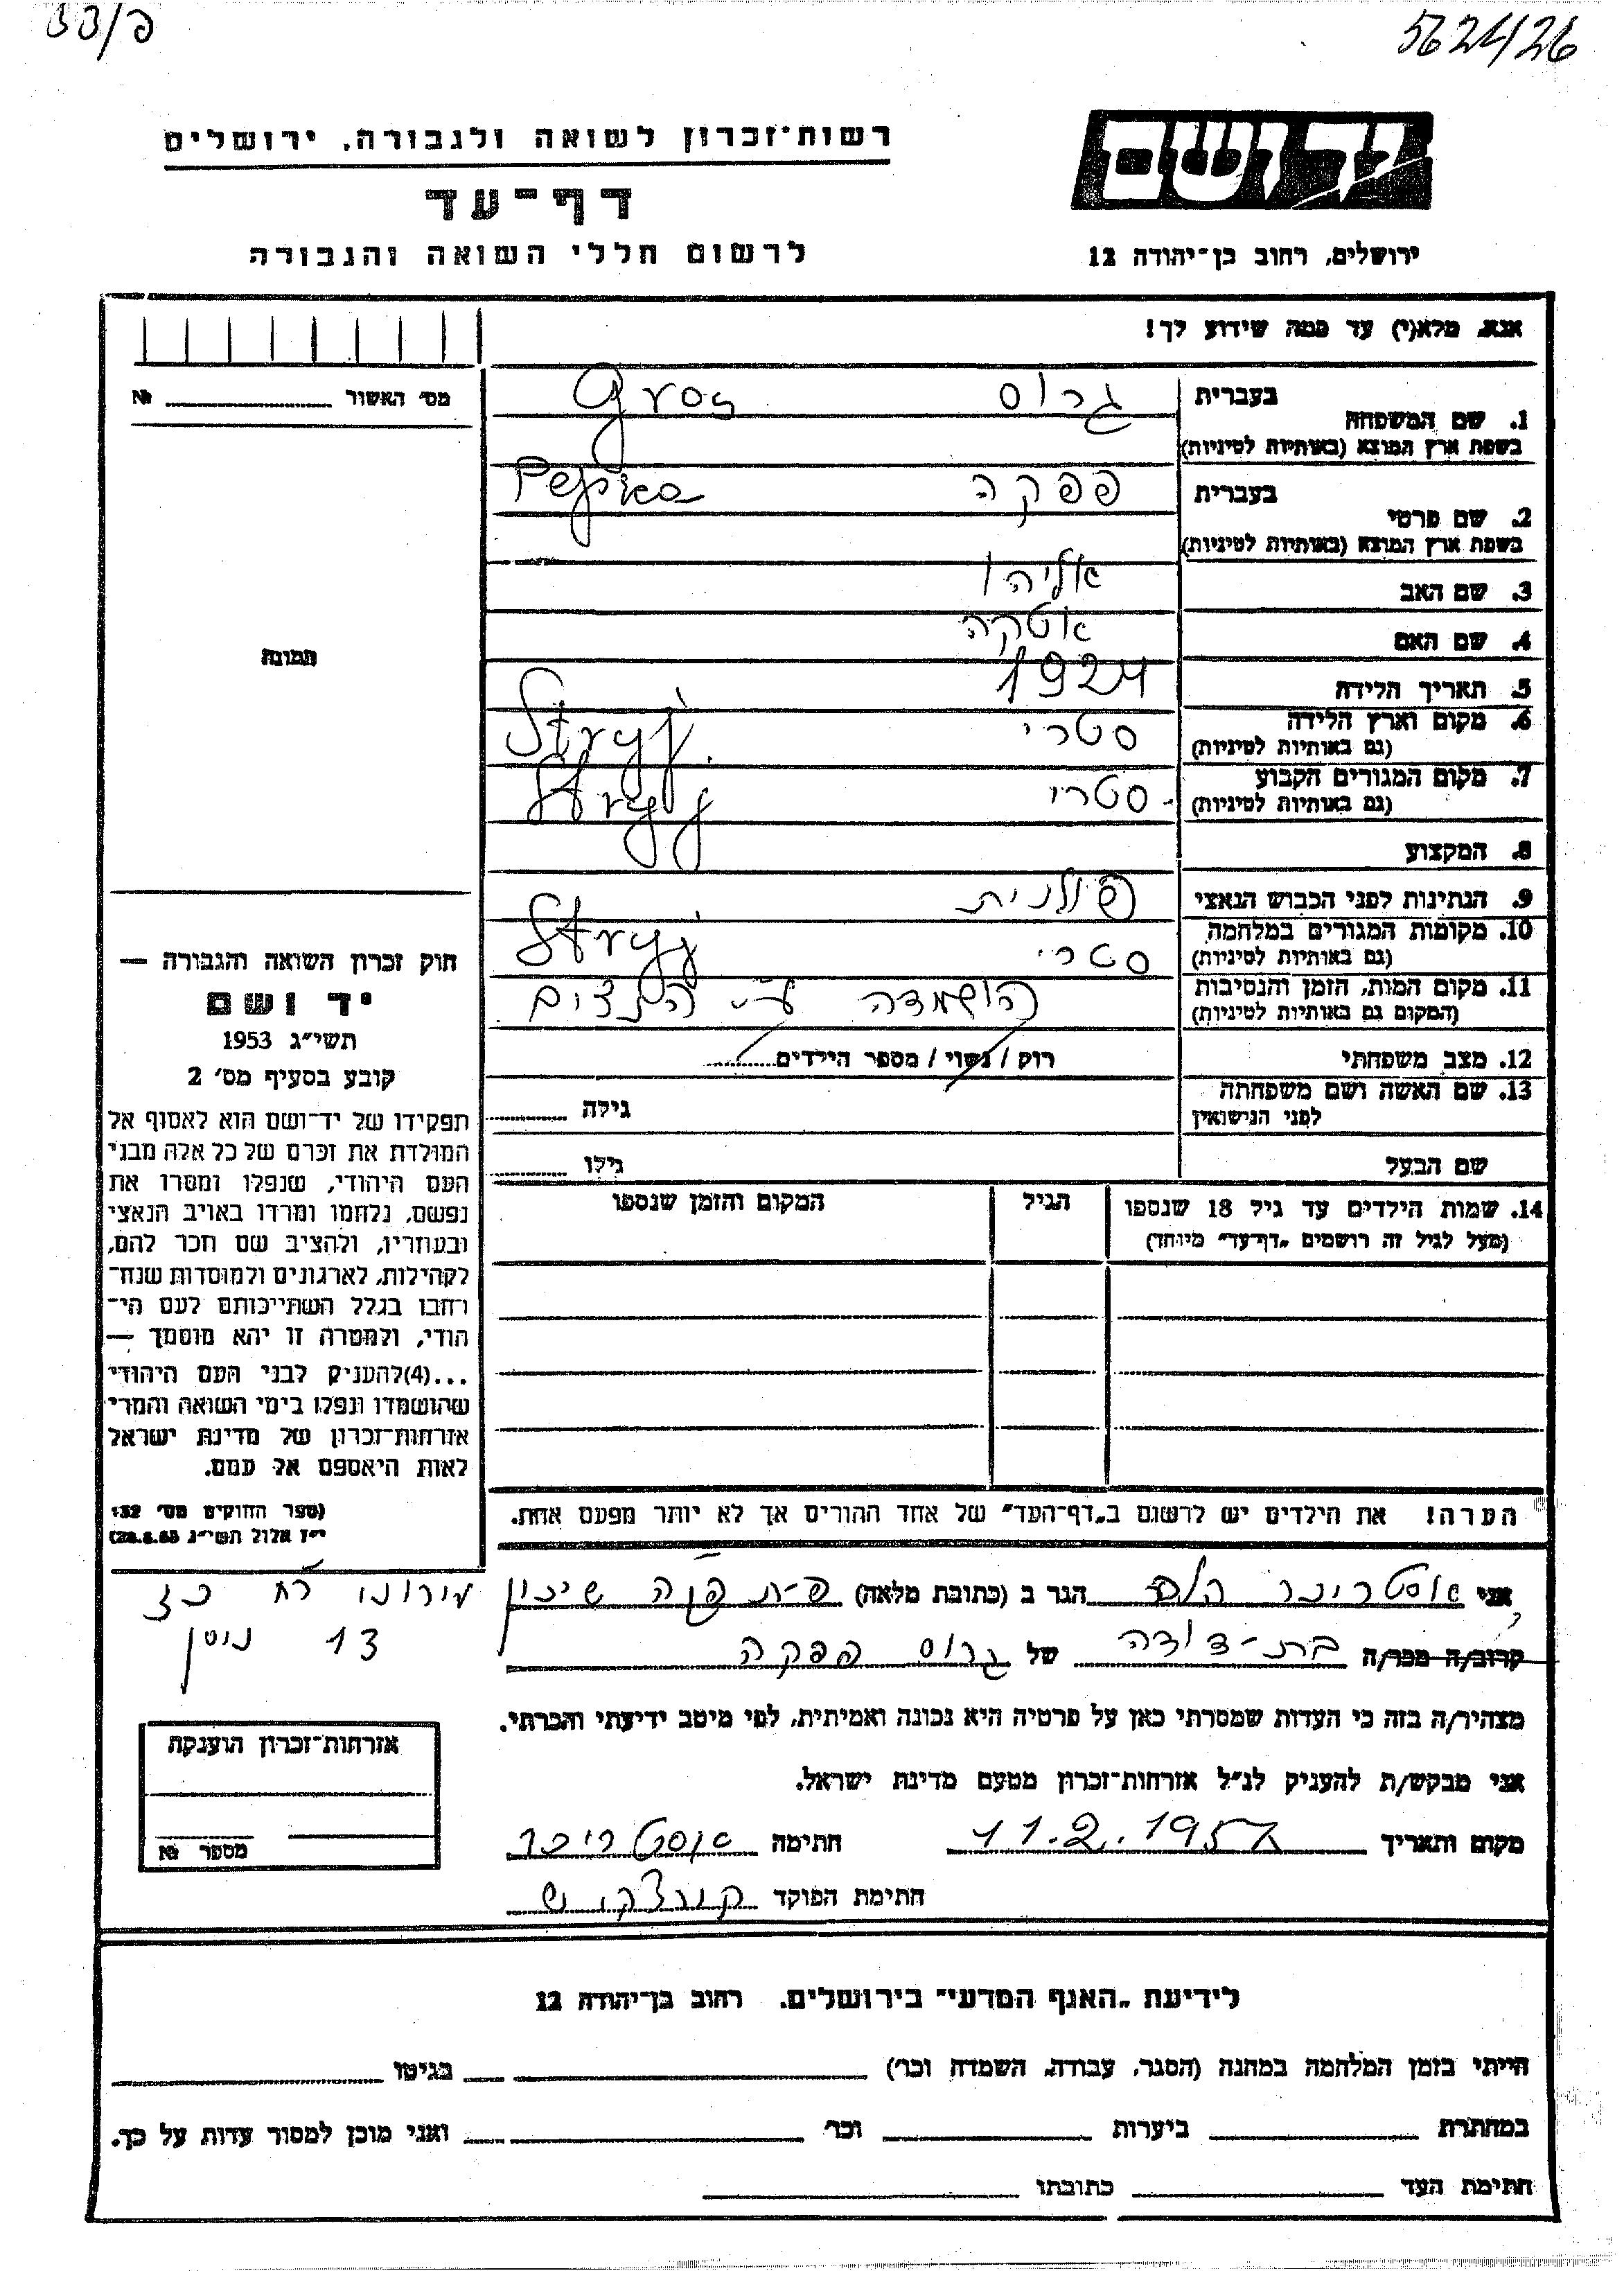 33/פ
5624/26
יד ושם
רשות-זכרון לשואה ולגבורה, ירושלים
דף-עד
לרשום חללי השואה והגבורה
ירושלים, רחוב בן-יהודה 12
אנא, מלא(י) עד כמה שידוע לך!
מס׳ האשור №
תמונה
בעברית
1. שם המשפחה
בשפת ארץ המוצא (באותיות לטיניות)
גרוס Gros
בעברית
2. שם פרטי
בשפת ארץ המוצא (באותיות לטיניות)
פפקה Pepka
3. שם האב אליהו
4. שם האם אטקה
5. תאריך הלידה 1924
6. מקום וארץ הלידה
(גם באותיות לטיניות)
סטרי Stryj
7. מקום המגורים הקבוע
(גם באותיות לטיניות)
סטרי Stryj
8. המקצוע
9. הנתינות לפני הכבוש הנאצי פולנית
10. מקומות המגורים במלחמה
(גם באותיות לטיניות)
סטרי Stryj
11. מקום המות, הזמן והנסיבות
(המקום גם באותיות לטיניות)
הושמדה ע״י הנאצים
12. מצב משפחתי רוק / נשוי / מספר הילדים
13. שם האשה ושם משפחתה
לפני הנישואין
גילה
שם הבעל גילו
14. שמות הילדים עד גיל 18 שנספו
(מעל לגיל זה רושמים „דף-עד״ מיוחד)
הגיל
המקום והזמן שנספו
חוק זכרון השואה והגבורה —
יד ושם
תשי״ג 1953
קובע בסעיף מס׳ 2
תפקידו של יד-ושם הוא לאסוף אל
המולדת את זכרם של כל אלה מבני
העם היהודי, שנפלו ומסרו את
נפשם, נלחמו ומרדו באויב הנאצי
ובעוזריו, ולהציב שם וזכר להם,
לקהילות, לארגונים ולמוסדות שנח-
רבו בגלל השתייכותם לעם הי-
הודי, ולמטרה זו יהא מוסמך —
...(4)להעניק לבני העם היהודי
שהושמדו ונפלו בימי השואה והמרי
אזרחות-זכרון של מדינת ישראל
לאות היאספם אל עמם.
(ספר החוקים מס׳ 132
י״ז אלול תשי״ג (28.8.53)
הערה! את הילדים יש לרשום ב„דף-העד״ של אחד ההורים אך לא יותר מפעם אחת.
אני אוסטריכר הלה הגר ב (כתובת מלאה) שיכון
13
קרוב/ה מכר/ה בת-דודה של גרוס פפקה
מצהיר/ה בזה כי העדות שמסרתי כאן על פרטיה היא נכונה ואמיתית, לפי מיטב ידיעתי והכרתי.
אני מבקש/ת להעניק לנ״ל אזרחות-זכרון מטעם מדינת ישראל.
אזרחות-זכרון הוענקה
מספר №
מקום ותאריך 11.2.1957 חתימה אוסטריכר
חתימת הפוקד
לידיעת „האגף המדעי״ בירושלים, רחוב בן-יהודה 12
הייתי בזמן המלחמה במחנה (הסגר, עבודה, השמדה וכו׳) בגיטו
במחתרת ביערות וכו׳ ואני מוכן למסור עדות על כך.
חתימת העד כתובתו